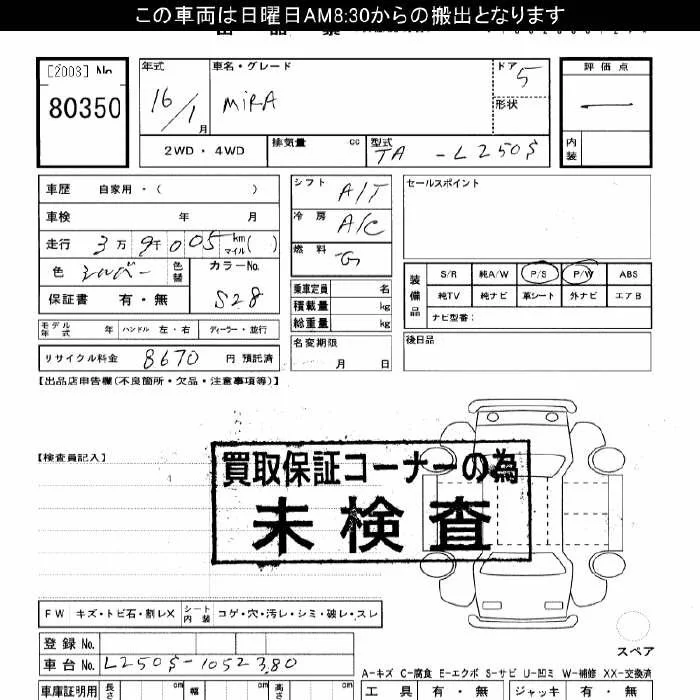 この車両は日曜日AM8:30からの搬出となります
[2003] No
80350
年式 車名・グレード ドア 5 評価点
16/1月 MiRA 形状 —
2WD・4WD 排気量 cc 型式 TA-L250S 内装
車歴 自家用・( ) シフト A/T セールスポイント
車検 年 月 冷房 A/C
走行 3万9千005 km マイル( ) 燃料 G
色 シルバー 色替 カラーNo. S28
装備品 S/R 純A/W P/S P/W ABS
保証書 有・無 乗車定員 名 純TV 純ナビ 革シート 外ナビ エアB
積載量 kg ナビ型番:
モデル年式 年 ハンドル 左・右 ディーラー・並行 総重量 kg
リサイクル料金 8670 円 預託済 名変期限 月 日 後日品
【出品店申告欄(不良箇所・欠品・注意事項等)】
【検査員記入】
買取保証コーナーの為
未検査
FW キズ・トビ石・割レX シート内装 コゲ・穴・汚レ・シミ・破レ・スレ
登録No.
スペア
車台No. L250S-1052380
A-キズ C-腐食 E-エクボ S-サビ U-凹ミ W-補修 XX-交換済
車庫証明用 長さ cm 幅 cm 高さ cm 工具 有・無 ジャッキ 有・無